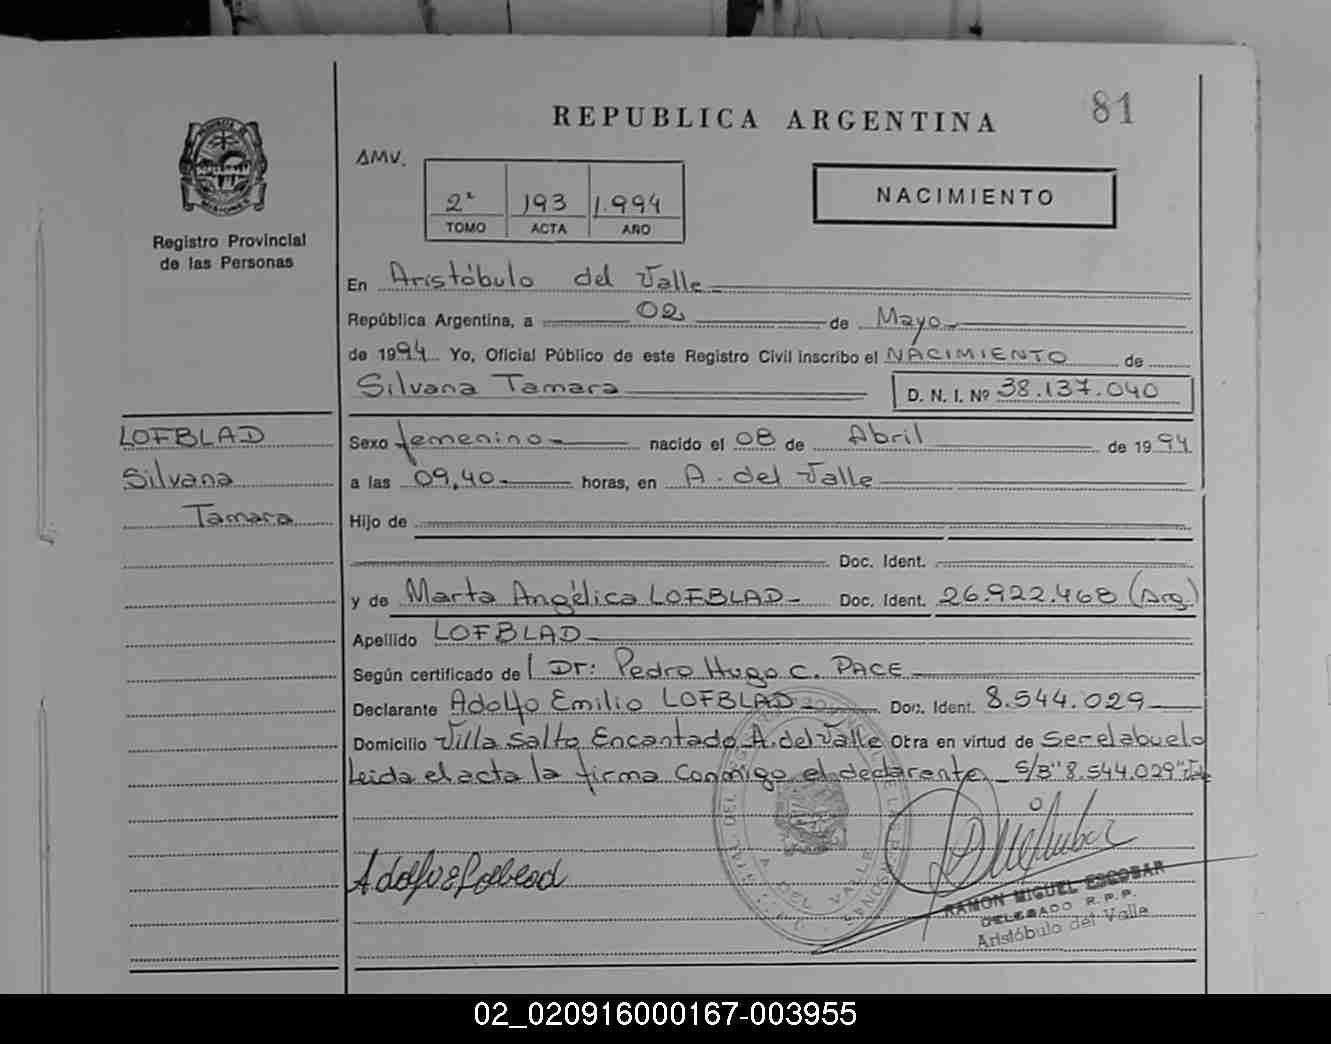 81
REPUBLICA ARGENTINA
AMV.
2º 193 1.994
TOMO ACTA AÑO
NACIMIENTO
Registro Provincial
de las Personas
En Aristóbulo del Valle
República Argentina, a 02 de Mayo
de 1994 Yo, Oficial Público de este Registro Civil inscribo el NACIMIENTO de
Silvana Tamara D. N. I. Nº 38.137.040
LOFBLAD
Silvana
Tamara
Sexo femenino nacido el 08 de Abril de 1994
a las 09,40 horas, en A. del Valle
Hijo de
Doc. Ident.
y de Marta Angélica LOFBLAD Doc. Ident. 26.922.468 (Arg.)
Apellido LOFBLAD
Según certificado del Dr: Pedro Hugo C. PACE
Declarante Adolfo Emilio LOFBLAD Doc. Ident. 8.544.029
Domicilio Villa Salto Encantado A. del Valle Otra en virtud de ser el abuelo
Leida el acta la firma conmigo el declarante S/B "8.544.029" Vale
RAMON MIGUEL ESCOBAR
DELEGADO R.P.P.
Aristóbulo del Valle
02_020916000167-003955